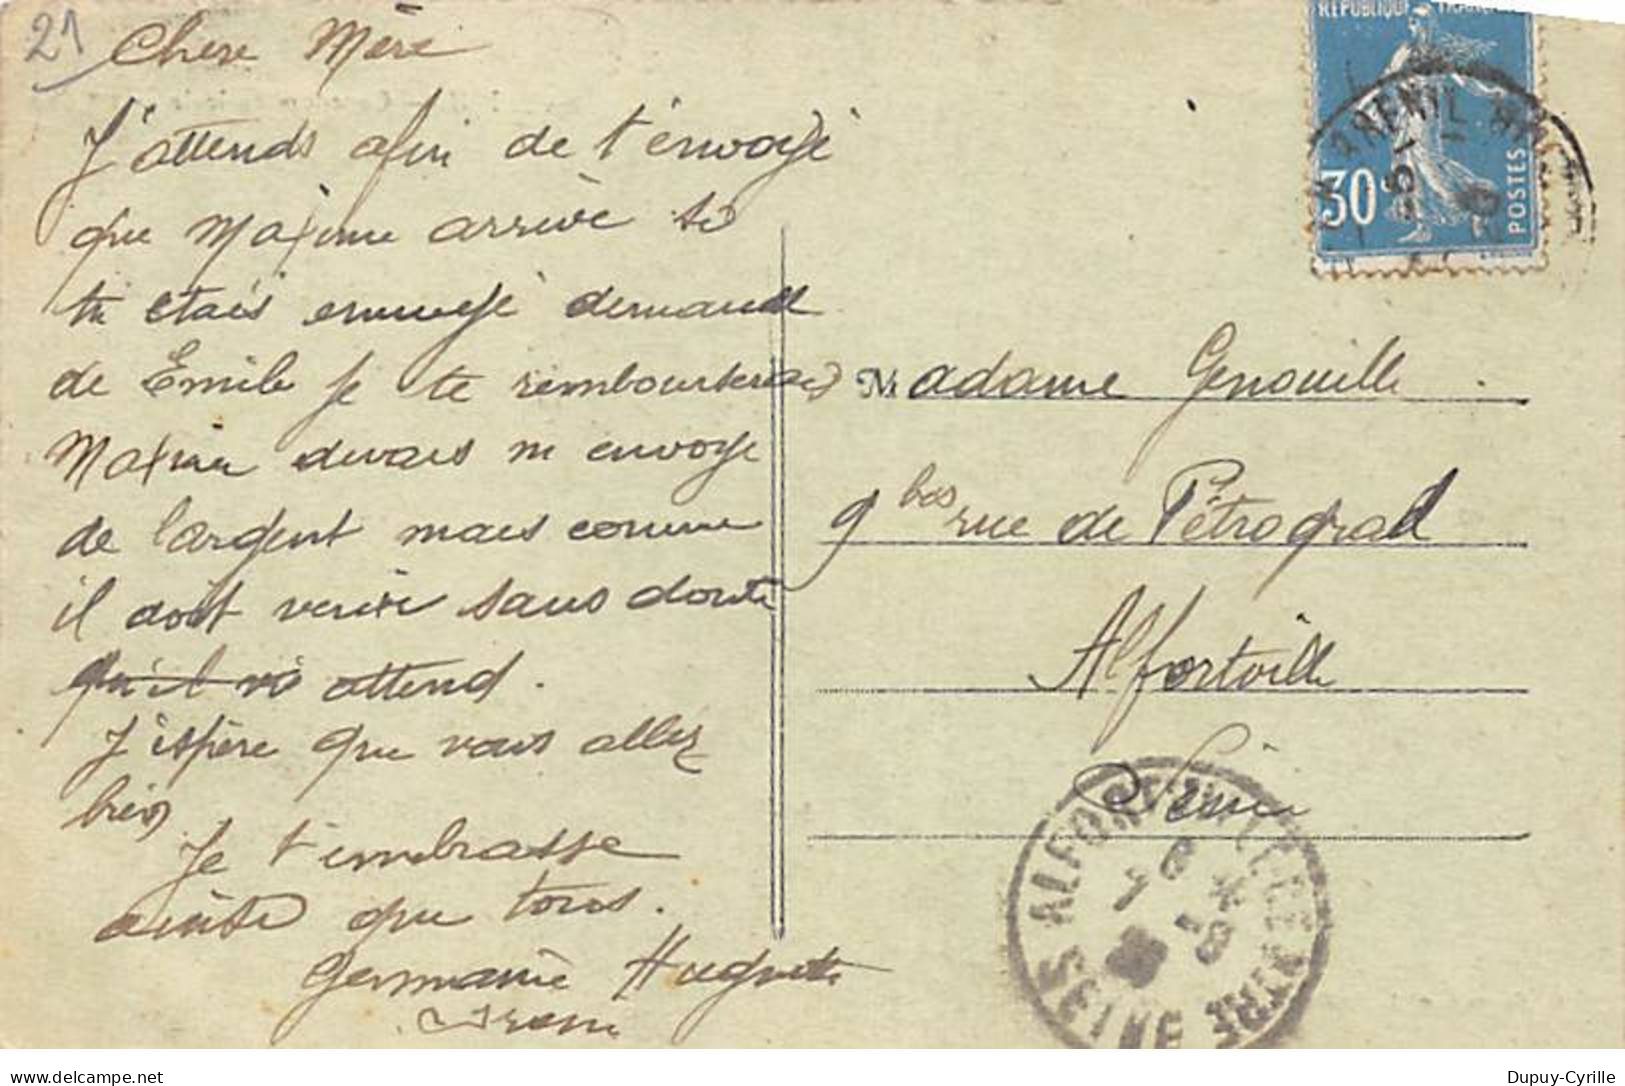 21
Chere Mère
J'attends afin de t'envoyé
que Maxime arrive si
tu étais ennuyé demande
de Emile je te rembourserai
Maxime devais m envoye
de l'argent mais comme
il doit venire sans doute
qu'il attend.
J'espère que vous allez
bien
Je t'embrasse
ainsi que tous.
Germaine Huguette
REPUBLIQUE
30c
POSTES
Madame Genouille
9 bis rue de Pétrograd
Alfortville
Seine
ALFORTVILLE
SEINE
delcampe.net
Dupuy-Cyrille